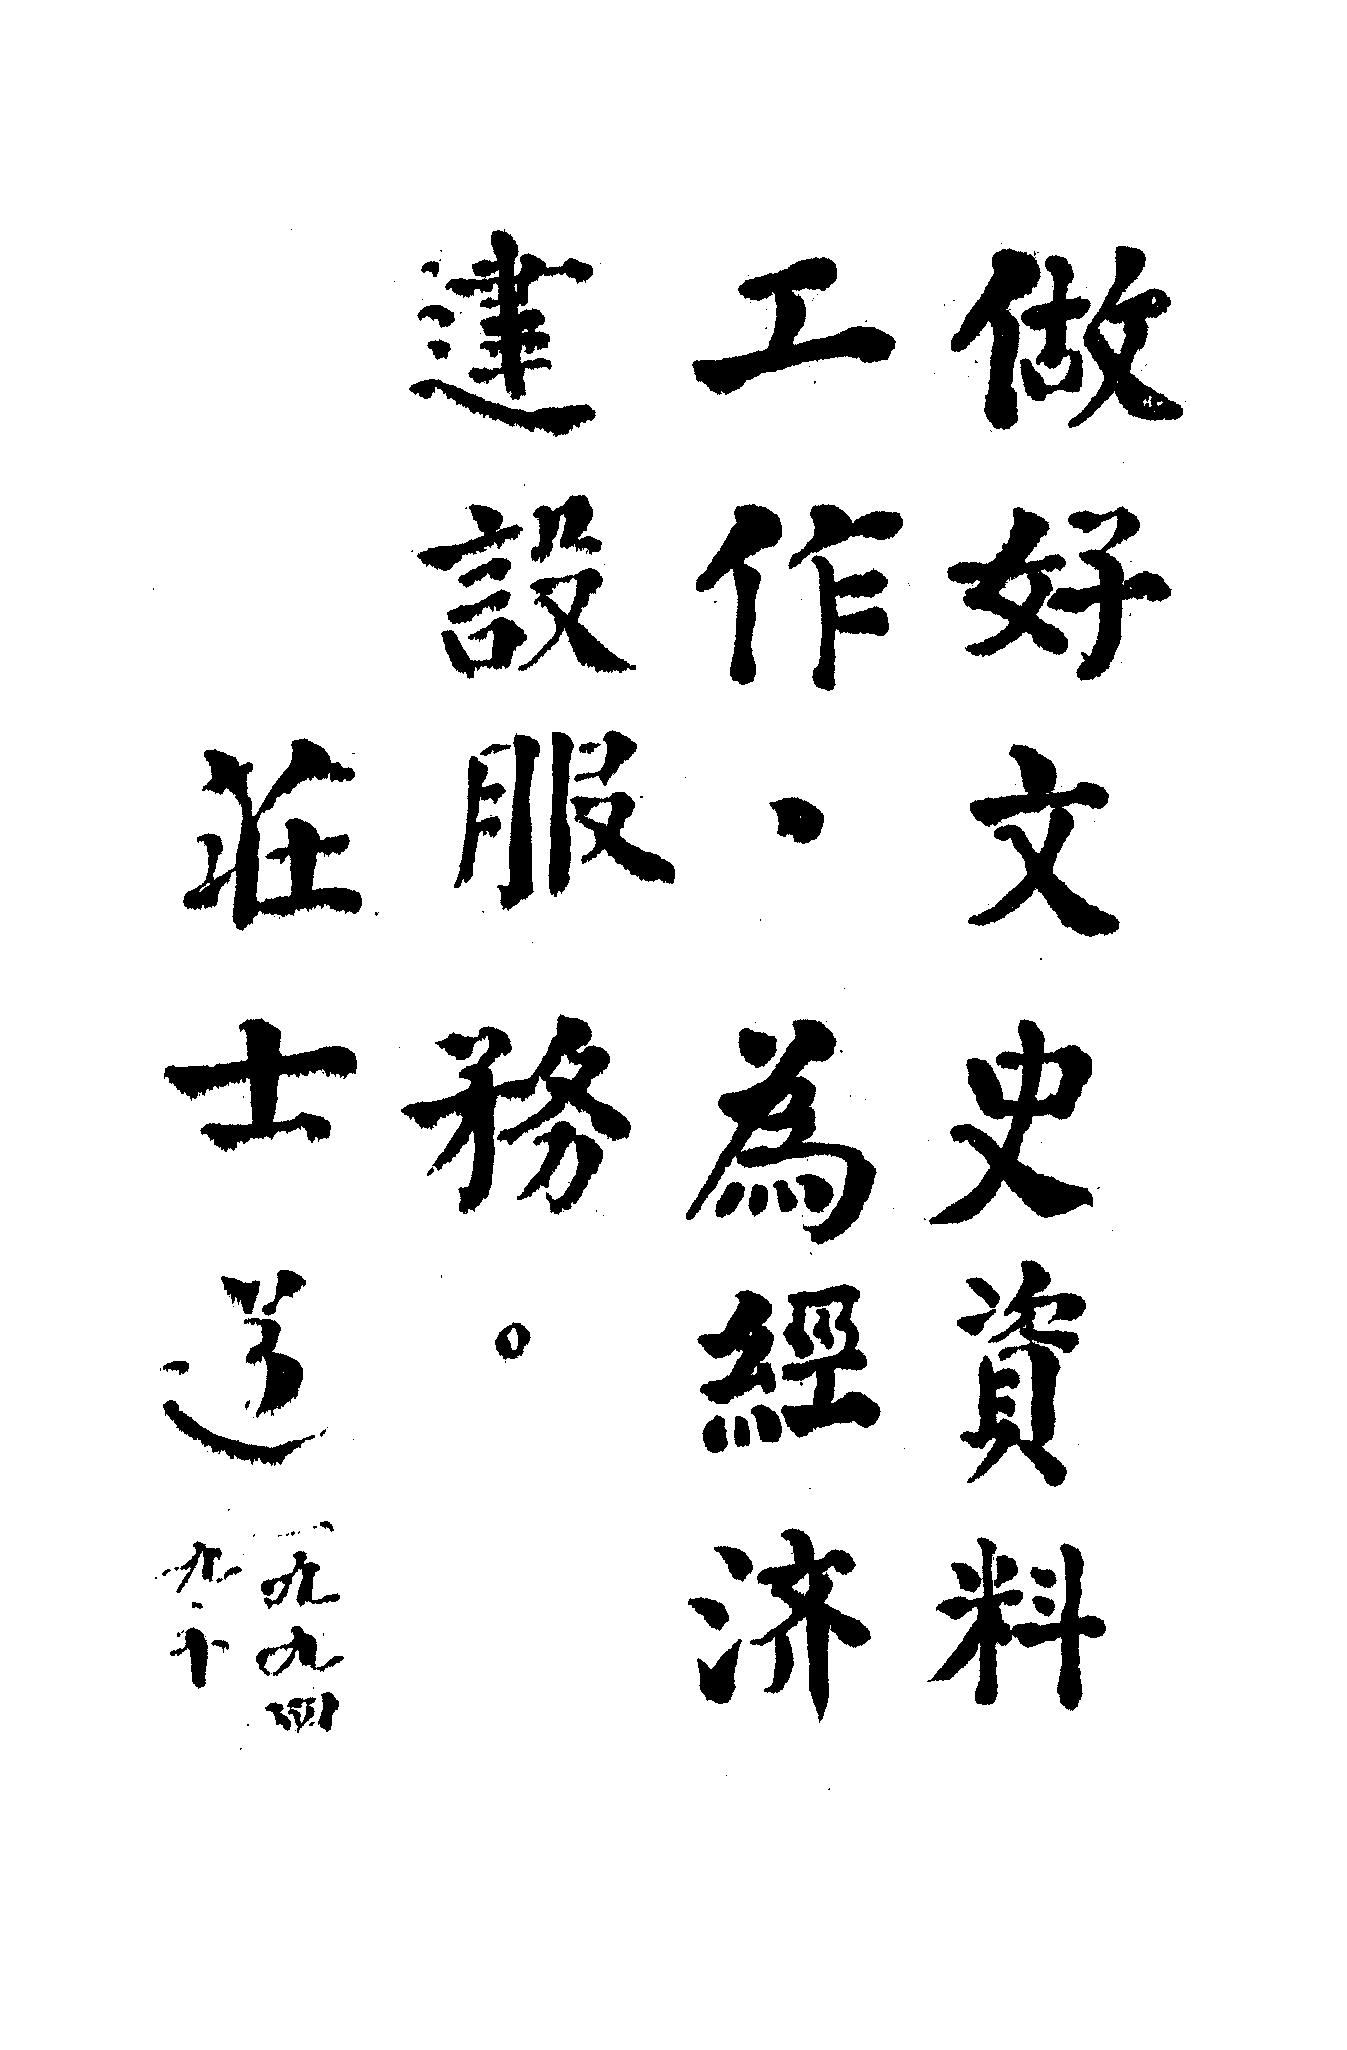 做好文史資料
工作、為經济
建設服務。
莊士道
一九九四
九、十